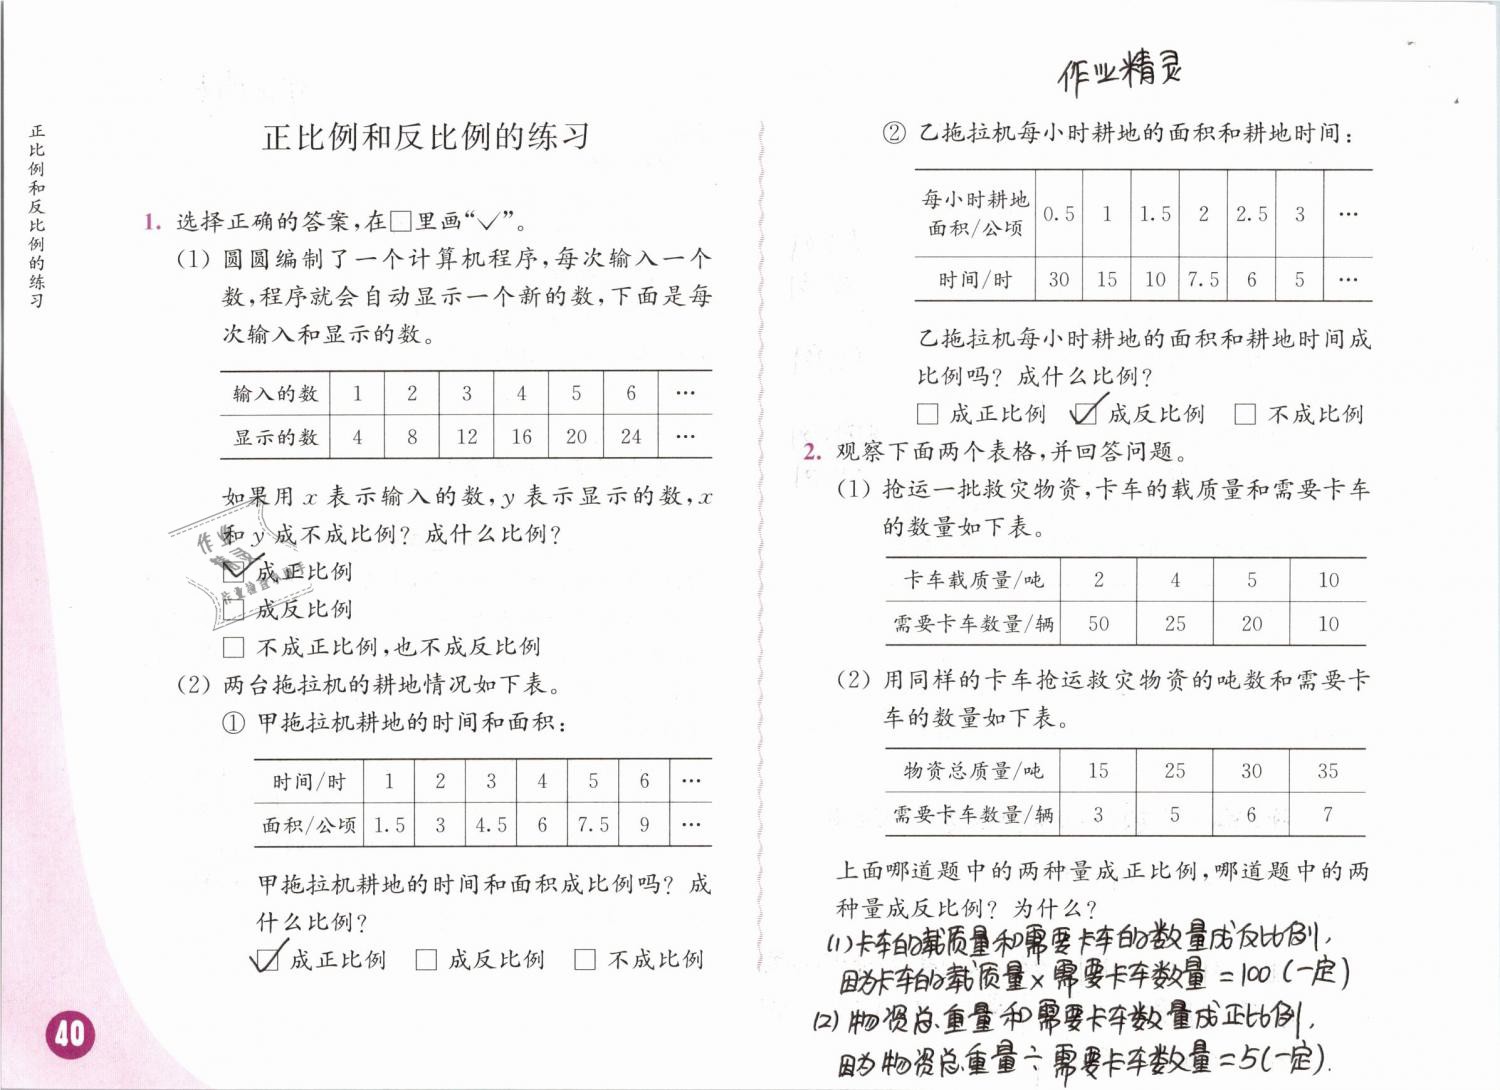 正比例和反比例的练习
正比例和反比例的练习
1. 选择正确的答案,在□里画“✓”。
(1) 圆圆编制了一个计算机程序,每次输入一个
数,程序就会自动显示一个新的数,下面是每
次输入和显示的数。
输入的数 1 2 3 4 5 6 …
显示的数 4 8 12 16 20 24 …
如果用 x 表示输入的数,y 表示显示的数,x
和 y 成不成比例? 成什么比例?
☑ 成正比例
□ 成反比例
□ 不成正比例,也不成反比例
(2) 两台拖拉机的耕地情况如下表。
① 甲拖拉机耕地的时间和面积:
时间/时 1 2 3 4 5 6 …
面积/公顷 1.5 3 4.5 6 7.5 9 …
甲拖拉机耕地的时间和面积成比例吗? 成
什么比例?
☑ 成正比例 □ 成反比例 □ 不成比例
40
作业精灵
② 乙拖拉机每小时耕地的面积和耕地时间:
每小时耕地
面积/公顷 0.5 1 1.5 2 2.5 3 …
时间/时 30 15 10 7.5 6 5 …
乙拖拉机每小时耕地的面积和耕地时间成
比例吗? 成什么比例?
□ 成正比例 ☑ 成反比例 □ 不成比例
2. 观察下面两个表格,并回答问题。
(1) 抢运一批救灾物资,卡车的载质量和需要卡车
的数量如下表。
卡车载质量/吨 2 4 5 10
需要卡车数量/辆 50 25 20 10
(2) 用同样的卡车抢运救灾物资的吨数和需要卡
车的数量如下表。
物资总质量/吨 15 25 30 35
需要卡车数量/辆 3 5 6 7
上面哪道题中的两种量成正比例,哪道题中的两
种量成反比例? 为什么?
(1)卡车的载质量和需要卡车的数量成反比例,
因为卡车的载质量×需要卡车数量=100(一定)
(2)物资总重量和需要卡车数量成正比例,
因为物资总重量÷需要卡车数量=5(一定).
作业
精灵